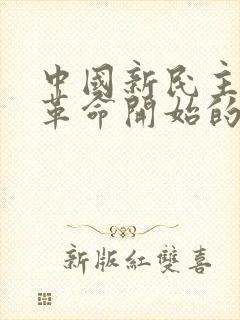 中國新民主
革命開始的
新版紅雙喜